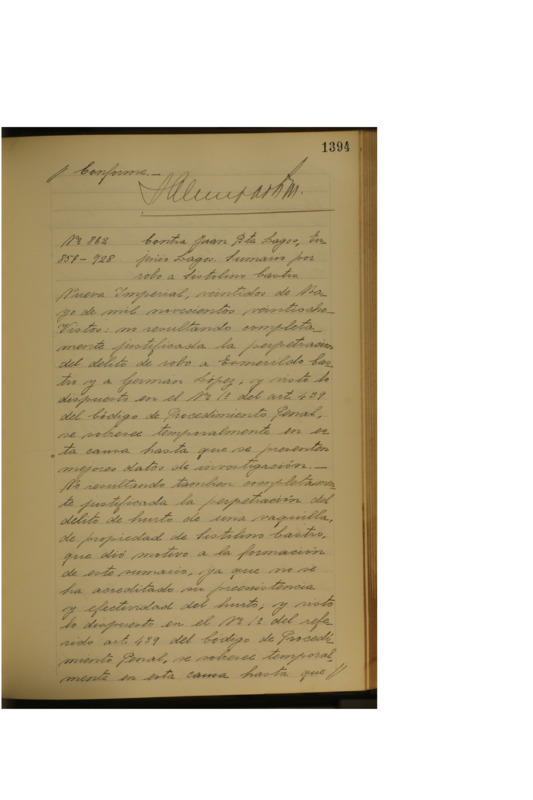 1394
Conforme.—
Nº 862 Contra Juan Bta Lagos, En
858-928 rico Lagos. Sumario por
robo a Sistolino Castro
Nueva Imperial, veintidos de Ma
yo de mil novecientos veintiocho
Vistos: no resultando completa
mente justificada la perpetracion
del delito de robo a Esmeraldo Cas
tro y a German López, y visto lo
dispuesto en el Nº 1º del art. 439
del Código de Procedimiento Penal,
se sobresee temporalmente en es
ta causa hasta que se presenten
mejores datos de investigación.—
No resultando tambien completamen
te justificada la perpetración del
delito de hurto de una vaquilla,
de propiedad de Sistolino Castro,
que dió motivo a la formación
de este sumario, ya que no se
ha acreditado su preexistencia
y efectividad del hurto, y visto
lo dispuesto en el Nº 1º del refe
rido art. 439 del Código de Procedi
miento Penal, se sobresee temporal
mente en esta causa hasta que //